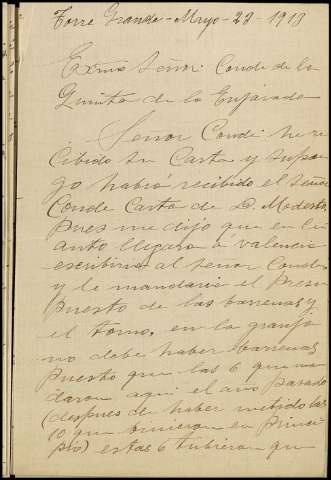 Torre Grande - Mayo - 23 - 1913
Exmo Señor Conde de la
Quinta de la Enjarada
Señor Conde he re
cibido su Carta y supon
go habrá recibido el señor
Conde Carta de D. Modesto
pues me dijo que en cu
anto llegara a Valencia
escribiria al señor Conde
y le mandaria el Presu
puesto de las barrenas y
el torno, en la granja
no debe haber barrenas
puesto que las 6 que man
daron aqui el año pasado
(despues de haber metido las
10 que trugeron en princi
pio) estas 6 tubieron que